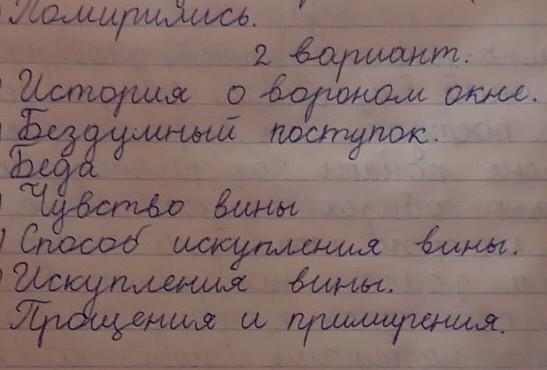 Помирились.
2 вариант.
История о вороном окне.
Бездумный поступок.
Беда
Чувство вины
) Способ искупления вины.
Искупления вины.
Прощения и примирения.